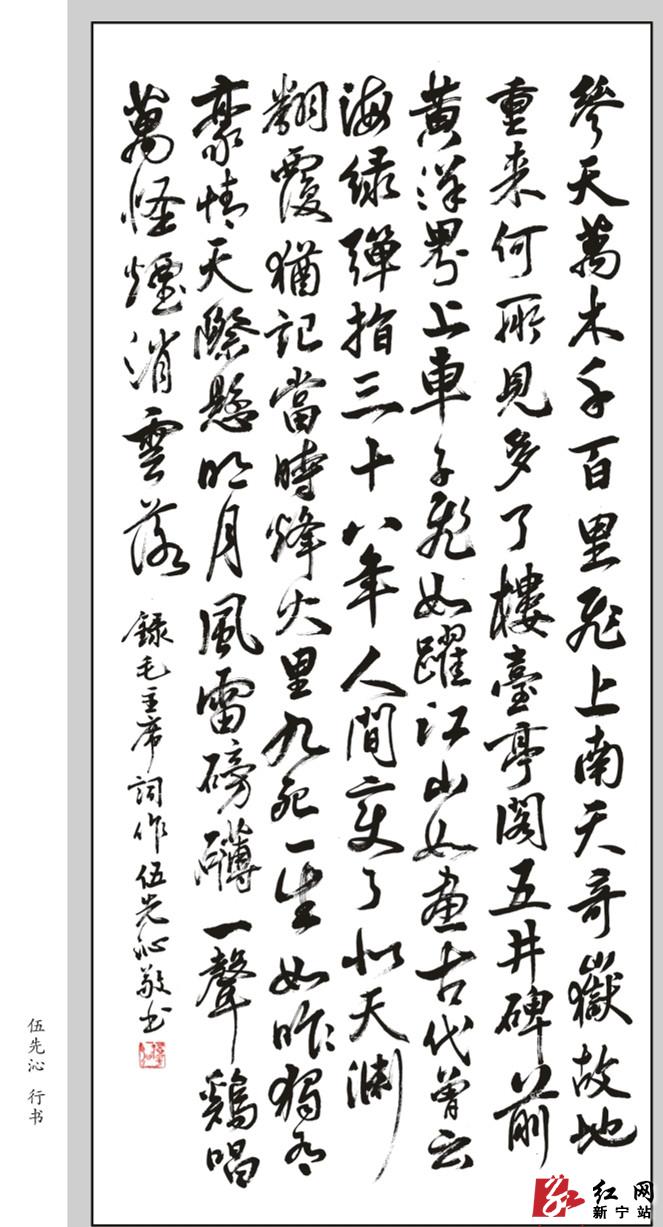 參天萬木千百里飛上南天奇嶽故地
重来何所見多了樓臺亭閣五井碑前
黄洋界上車子飛如躍江山如畫古代曾云
海绿彈指三十八年人間变了似天渊
翻覆猶記當時烽火里九死一生如昨獨有
豪情天際懸明月風雷磅礴一聲鷄唱
萬怪煙消雲落
録毛主席詞作伍先沁敬书
伍先沁 行书
红网
新宁站